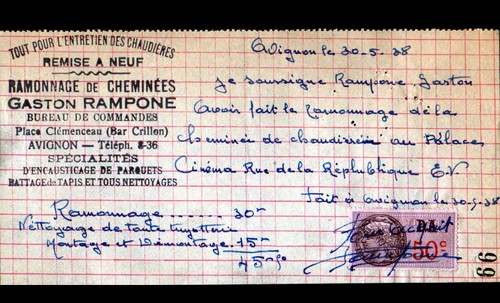 TOUT POUR L'ENTRETIEN DES CHAUDIÈRES
REMISE A NEUF
RAMONNAGE DE CHEMINÉES
GASTON RAMPONE
BUREAU DE COMMANDES
Place Clémenceau (Bar Crillon)
AVIGNON — Téléph. 8-36
SPÉCIALITÉS
D'ENCAUSTICAGE DE PARQUETS
BATTAGE DE TAPIS ET TOUS NETTOYAGES
Avignon le 30-5-38
Je soussigne Rampone Gaston
avoir fait le Ramonnage de la
cheminée de chaudière au Palace
Cinéma Rue de la République E.V.
Fait à Avignon le 30-5-38
Ramonnage ------- 30
Nettoyage de toute tuyetterie
Montage et Démontage 15
45
Pour acquit
50c
99